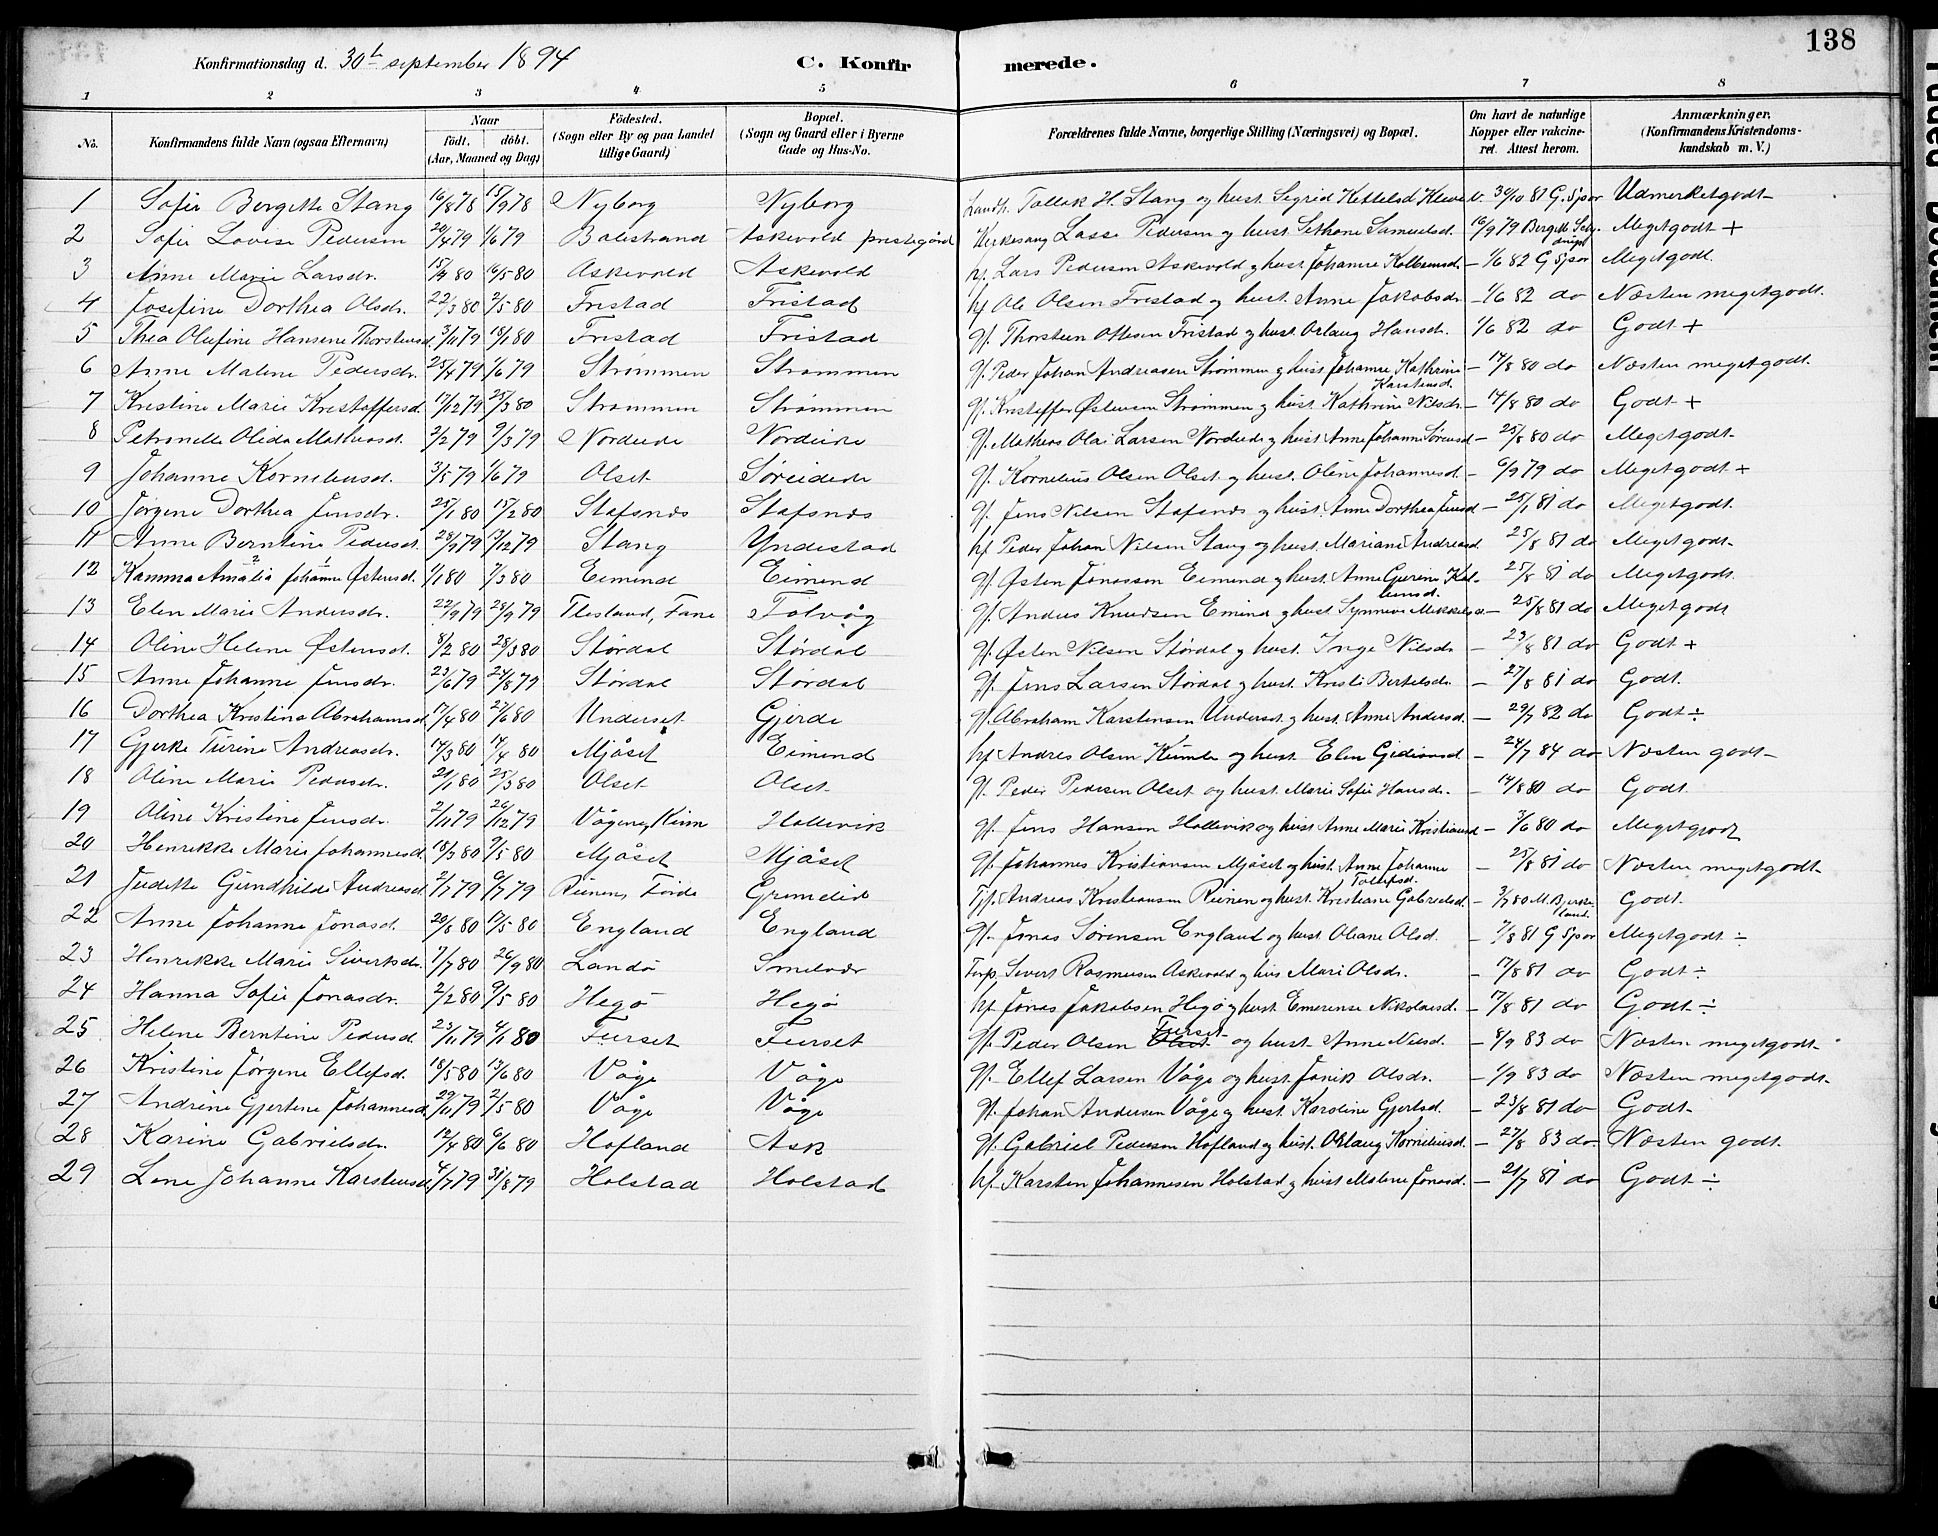 138
Konfirmationsdag d. 30te september 1894 C. Konfirmerede.
1 2 3 4 5 6 7 8
No. Konfirmandens fulde Navn (ogsaa Efternavn) Naar födt. döbt. (Aar, Maaned og Dag) Födested. (Sogn eller By og paa Landet tillige Gaard) Bopæl. (Sogn og Gaard eller i Byerne Gade og Hus-No. Forældrenes fulde Navne, borgerlige Stilling (Næringsvei) og Bopæl. Om havt de naturlige Kopper eller vakcineret. Attest herom. Anmærkninger. (Konfirmandens Kristendomskundskab m. V.)
1 Sofie Bergitte Stang 16/8 78 15/9 78 Nyborg Nyborg Landh. Tollak H. Stang og hust. Sigrid Kettelsd v. 30/10 81 G. Spor Udmerketgodt
2 Sofie Lovise Pedersen 20/4 79 1/6 79 Balestrand Askevold prestegård Kirkesang Lasse Pedersen og hust. Sethane Samuelsd. 16/9 79 Bergitte Meget godt +
3 Anne Marie Larsdr. 15/4 80 16/5 80 Askevold Askevold hf. Lars Pedersen Askevold og hust. Johanne Kolbeinsd. – 1/6 82 G Spor Megetgodt
4 Josefine Dorthea Olsdr. 22/3 80 2/5 80 Fristad Fristad hf Ole Olsen Fristad og hust. Anne Jakobsdr – 1/6 82 do Næsten megetgodt.
5 Thea Olufine Hansene Thorsteinsd. 3/11 79 18/1 80 Fristad Fristad gf. Thorstein Ottesen Fristad og hust. Orlaug Hansdr. 1/6 82 do Godt +
6 Anne Malene Pedersdr. 25/4 79 1/6 79 Strømmen Strømmen gf. Peder Johan Andreasen Strømmen og hust Johanne Kathrine Karstensd. – 14/8 80 do Næsten megetgodt.
7 Kristine Marie Kristoffersd. 17/12 79 25/3 80 Strømmen Strømmen gf. Kristoffer Østensen Strømmen og hust. Kathrine Nilsdr. – 14/8 80 do Godt +
8 Petronelle Olida Mathiasd. 2/2 79 9/3 79 Nordeide Nordeide gf. Mathias Olai Larsen Nordeide og hust. Anne Johanne Sørensd – 25/8 80 do Megetgodt
9 Johanne Korneliusd. 3/5 79 1/6 79 Olset Søreidede gf. Kornelius Olsen Olset og hust. Oline Johannesd. – 6/9 79 do Megetgodt +
10 Jørgene Dorthea Jensdr. 25/1 80 15/2 80 Stafsnes Stafsnes gf. Jens Nilsen Stafsnes og hust. Anne Dorthea Jensd – 25/1 81 do Megetgodt.
11 Anne Berntine Pedersd. 28/9 79 3/12 79 Stang Yndestad hf Peder Johan Nilsen Stang og hust. Mariane Andreasd. – 25/8 81 do Megetgodt
12 Kamma Amalia Johanne Østensd. 1/1 80 7/3 80 Eimend Eimend gf. Østen Jonassen Eimend og hust. Anne Gurine – 25/8 81 do Megetgodt.
13 Elen Marie Andersdr. 22/9 79 28/9 79 Flesland, Fane Tolvåg gf. Anders Knudsen Emind og hust. Synneve Mikkelsd – 25/8 81 do Megetgodt
14 Oline Helene Østensd. 8/2 80 28/3 80 Størdal Størdal gf. Østen Nilsen Størdal og hust. Inge Nilsdr – 23/8 81 do Godt +
15 Anne Johanne Jensdr. 23/6 79 24/8 79 Størdal Størdal gf. Jens Larsen Størdal og hust. Kristi Bertelsdr. – 27/8 81 do Godt.
16 Dorthea Kristina Abrahamsd. 17/4 80 27/6 80 Underset Gjerde gf. Abraham Karstensen Underset og hust. Anne Andersd. – 29/7 82 do Godt ÷
17 Gjerke Turine Andreasdr. 14/3 80 14/4 80 Mjåset Eimend hf Andres Olsen og hust. Elen Gidionsd – 24/7 84 do Næsten godt
18 Oline Marie Pedersdr. 21/1 80 25/3 80 Olset Olset gf. Peder Pedersen Olset og hust. Marie Sofie Hansdr. – 14/8 80 do Godt
19 Oline Kristine Jensdr. 2/11 79 26/12 79 Vågene, Kinn Hollevik gf. Jens Hansen Hollevik og hust Anne Marie Kristiansd – 3/6 80 do Megetgodt
20 Henrikke Marie Johannesd. 18/3 80 9/5 80 Mjåset Mjåset gf. Johannes Kristiansen Mjåset og hust. Anne Johanne Tollefsd. – 25/8 81 do Næsten megetgodt
21 Judette Gundhilde Andreasd. 2/7 79 6/7 79 Rienen, Førde Grimelid Tjf. Andreas Kristiansen Rienen og hust. Kristiane Gabrielsd. – 3/7 80 M. Bjerkeland. Godt.
22 Anne Johanne Jonasd. 20/3 80 17/5 80 England England gf. Jonas Sørensen England og hust. Oliane Olsd. – 7/8 81 G Spor Megetgodt ÷
23 Henrikke Marie Sivertsdr. 7/7 80 26/9 80 Landø Smelvær Sivert Rasmusen Askevold og hus Mari Olsdr. – 17/8 81 do Godt ÷
24 Hanna Sofie Jonasdr. 2/2 80 9/5 80 Hegø Hegø hf. Jonas Jakobsen Hegø og hust. Emerense Nikolaisd. – 17/8 81 do Godt ÷
25 Helene Berntine Pedersd. 23/11 79 4/1 80 Furset Furset gf. Peder Olsen Olset Furset og hust. Anne Nilsd. – 8/9 83 do Næsten megetgodt
26 Kristine Jørgene Ellefsd. 18/5 80 13/6 80 Våge Våge gf. Ellef Larsen Våge og hust. Janik Olsdr. – 1/9 83 do Næsten megetgodt
27 Andrine Gjertine Johannesd. 29/11 79 2/5 80 Våge Våge gf. Johan Andersen Våge og hust. Karoline Gjertsd. – 23/8 81 do Godt
28 Karine Gabrielsdr. 12/4 80 6/6 80 Hofland Ask gf. Gabriel Pedersen Hofland og hust. Orlaug Korneliusd. – 27/8 83 do Næsten godt.
29 Lene Johanne Karstensd. 4/7 79 31/8 79 Holstad Holstad hf. Karsten Johannesen Holstad og hust Malene Jonasd. – 21/7 81 do Godt ÷